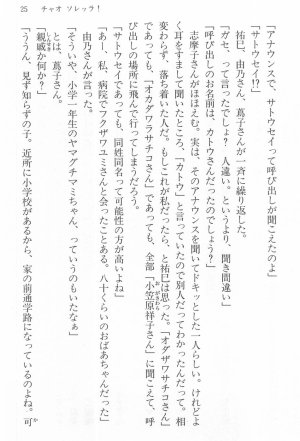 25　チャオ ソレッラ！
「アナウンスで、サトウセイって呼び出しが聞こえたのよ」
「サトウセイ!?」
祐巳、由乃さん、蔦子さんが一斉に繰り返した。
「ガセ、って言ったでしょ？　人違い。というより、聞き間違い」
「呼び出しのお名前は、カトウさんだったのでしょう？」
志摩子さんがほほえむ。実は、そのアナウンスを聞いてドキッとした一人らしい。けれどよ
く耳をすまして聞いたところ、「カトウ」と言っていたので別人だってわかったんだって。相
変わらず、落ち着いた人だ。もしこれが私だったら、と祐巳は思った。「オダザワサチコさん」
であっても、「オカダワラサチコさん」であっても、全部「小笠原祥子さん」に聞こえて、呼
おがさわらさちこ
び出しの場所に飛んで行ってしまうだろう。
「サトウセイであっても、同姓同名って可能性の方が高いよね」
由乃さんが言った。
「あー、私、病院でフクザワユミさんと会ったことある。八十くらいのおばあちゃんだった」
「そういや、小学一年生のヤマグチマミちゃん、っていうのもいたなぁ」
とは、蔦子さん。
「親戚か何か？」
しんせき
「ううん、見ず知らずの子。近所に小学校があるから、家の前通学路になっているのよね。可
か